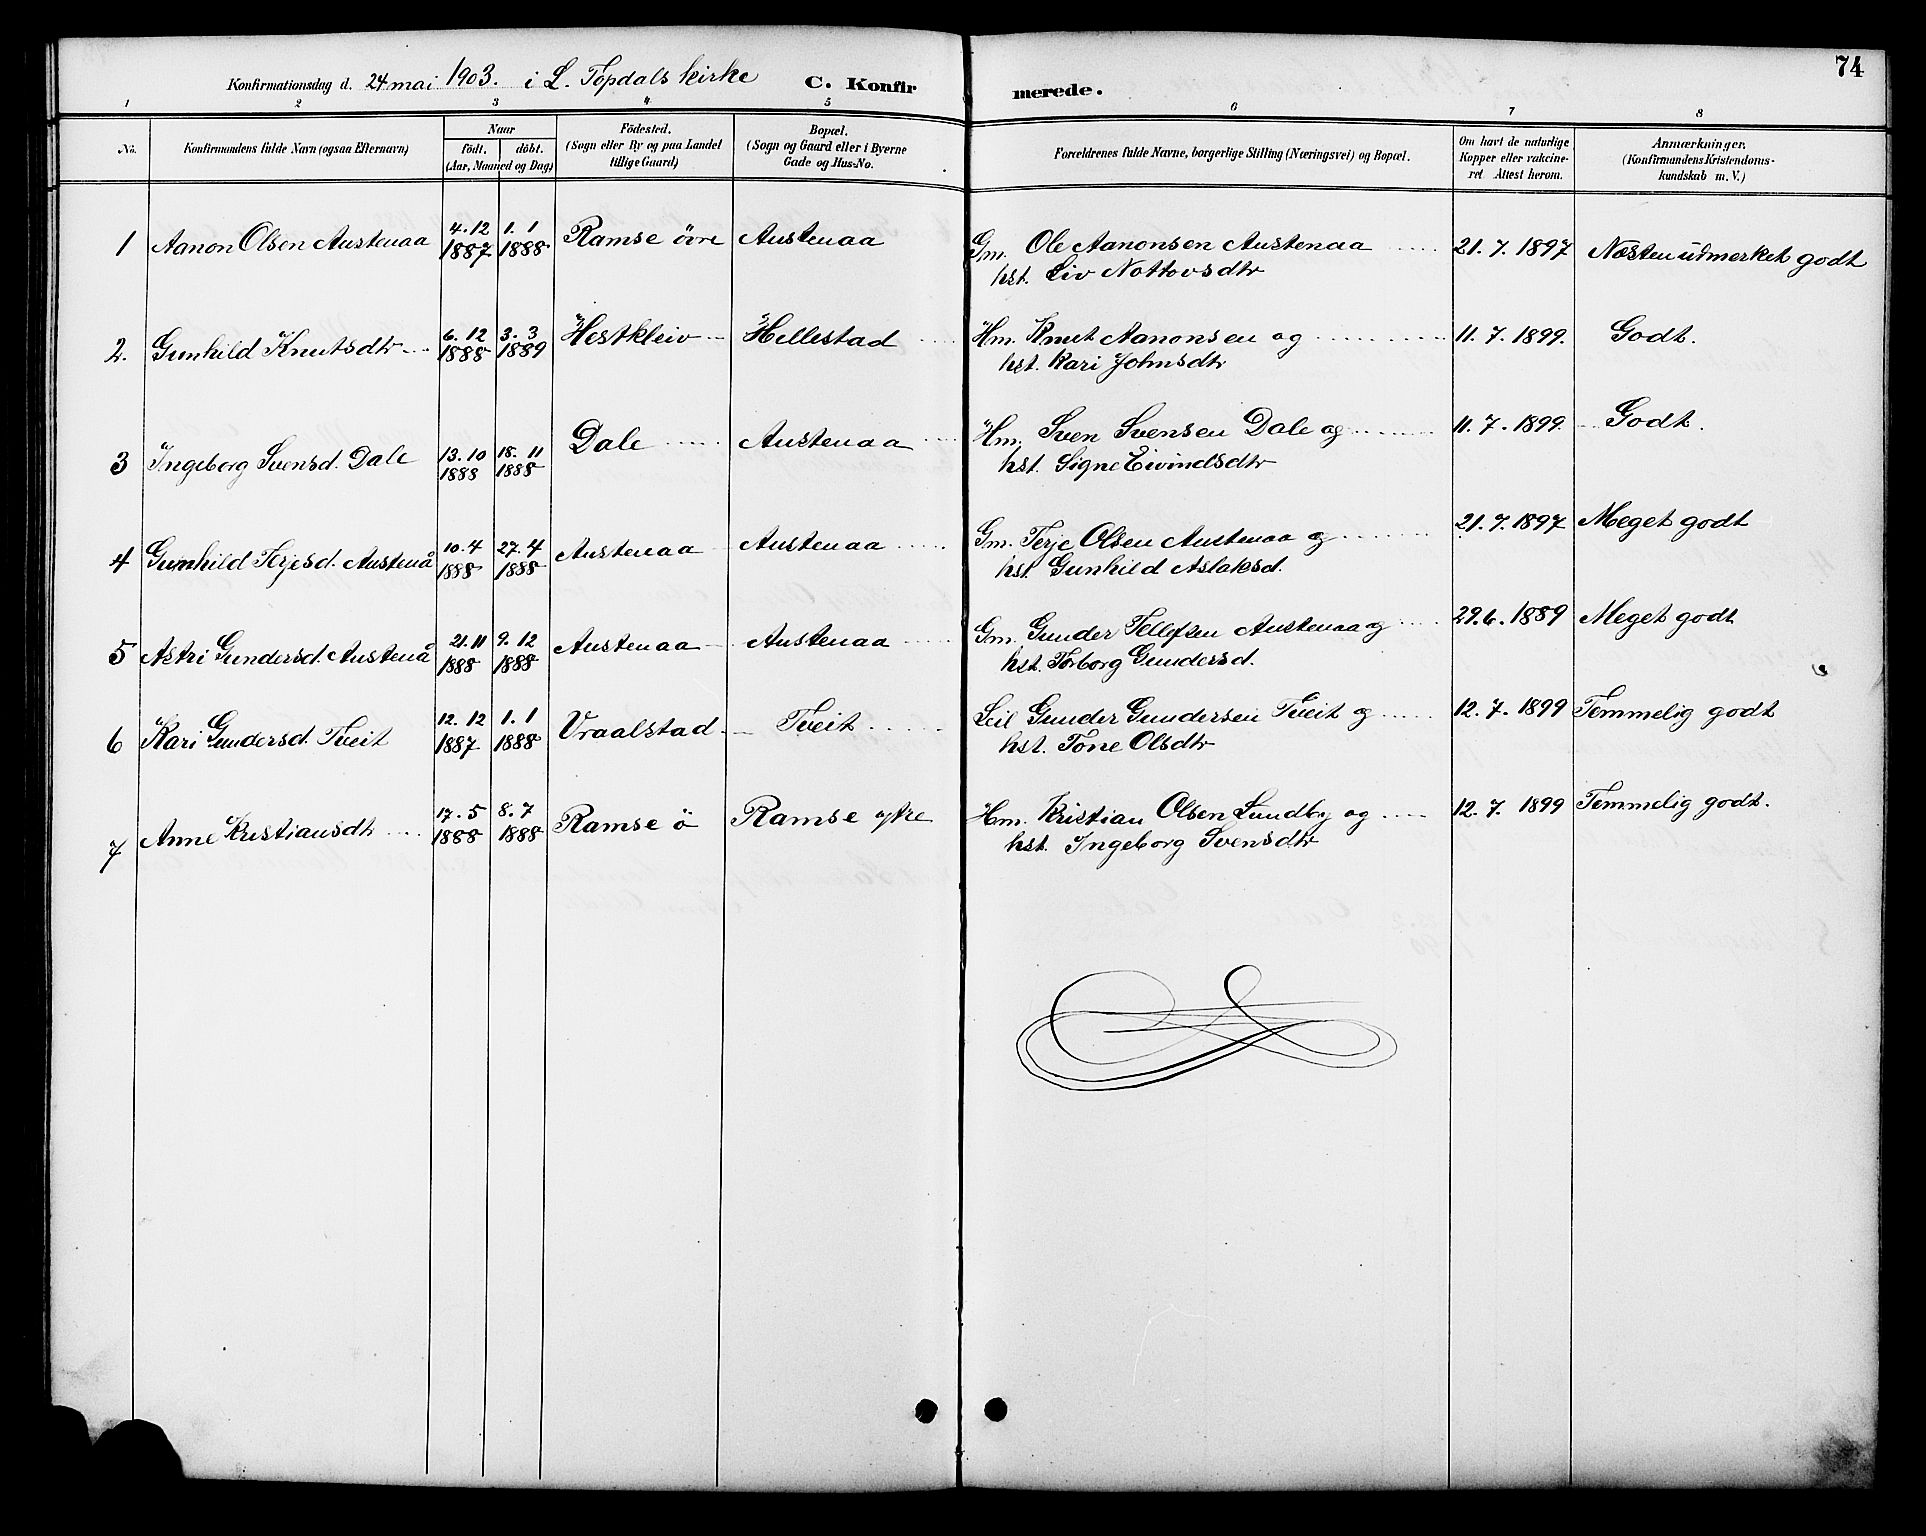 74
Konfirmationsdag d. 24 mai 1903. i L. Topdals kirke C. Konfirmerede.
1 2 3 4 5 6 7 8
No. Konfirmandens fulde Navn (ogsaa Efternavn) Naar födt. döbt. (Aar, Maaned og Dag) Födested. (Sogn eller By og paa Landet tillige Gaard) Bopæl. (Sogn og Gaard eller i Byerne Gade og Hus-No. Forældrenes fulde Navne, borgerlige Stilling (Næringsvei) og Bopæl. Om havt de naturlige Kopper eller vakcineret Attest herom. Anmærkninger. (Konfirmandens Kristendomskundskab m. V.)
1 Aanon Olsen Austenaa 4.12 1887 1.1 1888 Ramse övre Austenaa Gm. Ole Aanonsen Austenaa 21.7.1897 Næsten udmerket godt
hst. Liv Nottovsdtr
2. Gunhild Knutsdtr 6.12 1888 3.3 1889 Hestkleiv Hellestad Hm. Knut Aanonsen og 11.7.1899. Godt.
hst. Kari Johnsdtr
3 Ingeborg Svensd. Dale 13.10 1888 18.11 1888 Dale Austenaa Hm. Sven Svensen Dale og 11.7.1899. Godt.
hst. Signe Eivindsdtr
4 Gunhild Terjesd. Austenå 10.4 1888 27.4 1888 Austenaa Austenaa Gm. Terje Olsen Austenaa og 21.7.1897 Meget godt
hst. Gunhild Aslaksd.
5 Astri Gundersd. Austenå 21.11 1888 9.12 1888 Austenaa Austenaa Gm. Gunder Tellefsen Austenaa og 29.6.1889 Meget godt
hst. Torborg Gundersd.
6 Kari Gundersd. Tveit 12.12 1887 1.1 1888 Vraalstad Tveit Leil Gunder Gundersen Tveit og 12.7.1899 Temmelig godt
hst. Tone Olsdtr
7 Anne Kristiansdtr 17.5 1888 8.7 1888 Ramse ö Ramse ytre Hm. Kristian Olsen Lundby og 12.7.1899 Temmelig godt.
hst. Ingeborg Svensdtr